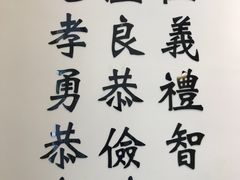 義禮智
良恭儉
孝勇恭